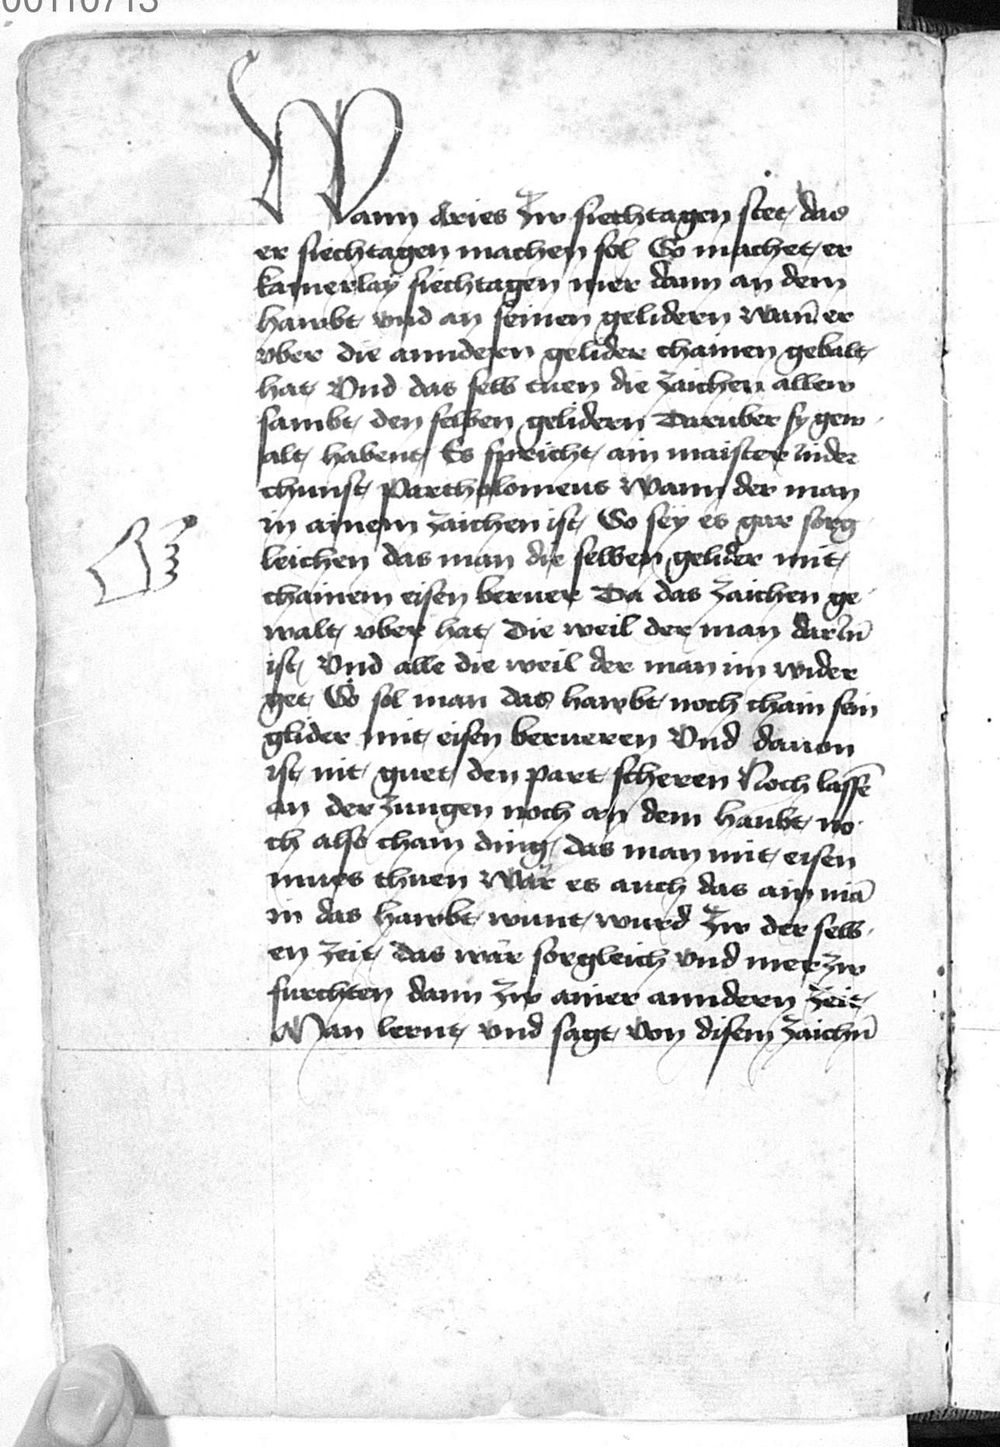 00110713
Wann Aries zw siechtagen stet das
er siechtagen machen sol So machet er
kainerlay siechtagen mer dann an dem
hawbt vnd an seinen gelidern wan̄ er
vber die anndern gelider chainen gebalt
hat Vnd das selb tuen die zaichen allew
sambt den selben gelidern Daruber sy gew
alt habent Es spricht ain maister in der
chunst Partholomeus Wann der man
in ainem zaichen ist So sey es gar sorg
leichen das man die selben gelider mit
chainem eisen beruer Da das zaichen ge
walt vber hat Die weil der man darin̄
ist Vnd alle die weil der man im wider
get So sol man das hawbt noch chain sein
glider mit eisen berueren Vnd dauon
ist nit guet den part scheren Noch lassē
an der zungen noch an dem haubt no
ch also chain ding das man mit eisen
mues thuen Wär es auch das ain mā
in das hawbt wunt wurd zw der selb
en zeit das wär sorgleich vnd mer zw
furchten dann zw ainer anndern zeit
Man lernt vnd sagt von disem zaichn̄